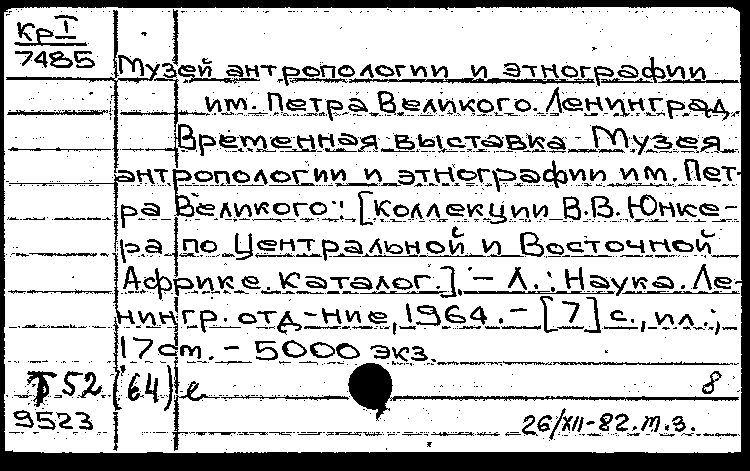 Кр I
7485
Музей антропологии и этнографии
им. Петра Великого. Ленинград.
Временная выставка Музея
антропологии и этнографии им. Пет-
ра Великого: [Коллекции В.В. Юнке-
ра по Центральной и Восточной
Африке. Каталог.]. - Л.: Наука. Ле-
нингр. отд-ние, 1964. - [7] с., ил.;
17 см. - 5000 экз.
Т52(64)е 8
9523
26/XII-82. т. з.